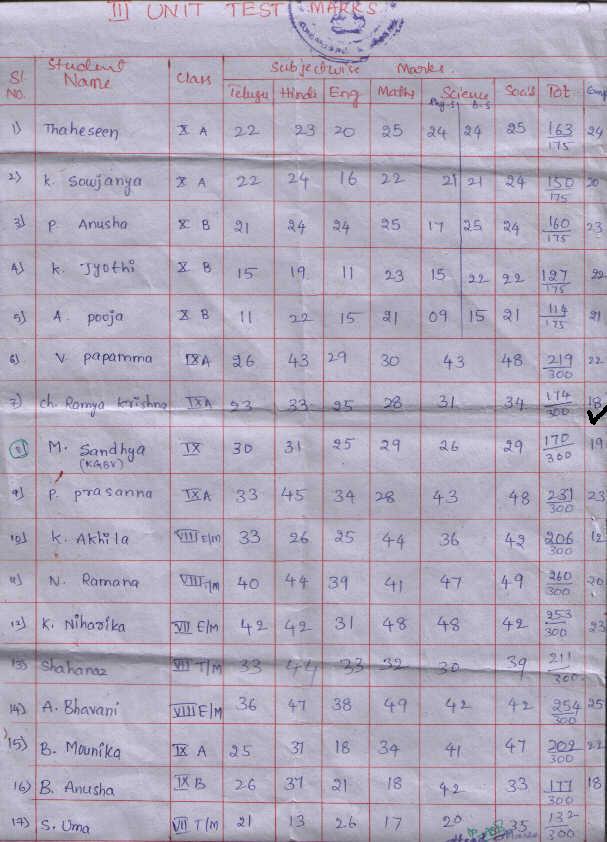 III UNIT TEST MARKS
Sl. No. Student Name Class Subjectwise Marks.
Telugu Hindi Eng Maths Science Social Tot Comp
Phy.S B.S
1) Thaheseen X A 22 23 20 25 24 24 25 163/175 24
2) K. Sowjanya X A 22 24 16 22 21 21 24 150/175 20
3) P. Anusha X B 21 24 24 25 17 25 24 160/175 23
4) K. Jyothi X B 15 19 11 23 15 22 22 127/175 22
5) A. pooja X B 11 22 15 21 09 15 21 114/175 21
6) V. papamma IX A 26 43 29 30 43 48 219/300 22
7) Ch. Ramya Krishna IX A 23 33 25 28 31 34 174/300 18
8) M. Sandhya (KGBV) IX 30 31 25 29 26 29 170/300 19
9) P. prasanna IX A 33 45 34 28 43 48 231/300 23
10) K. Akhila VIII E/M 33 26 25 44 36 42 206/300 12
11) N. Ramana VIII T/M 40 44 39 41 47 49 260/300 20
12) K. Niharika VII E/M 42 42 31 48 48 42 253/300 23
13) Shahanaz VII T/M 33 44 33 32 30 39 211/300
14) A. Bhavani VIII E/M 36 47 38 49 42 42 254/300 25
15) B. Mounika IX A 25 37 18 34 41 47 202/300 22
16) B. Anusha IX B 26 37 21 18 42 33 177/300 18
17) S. Uma VII T/M 21 13 26 17 20 35 132/300